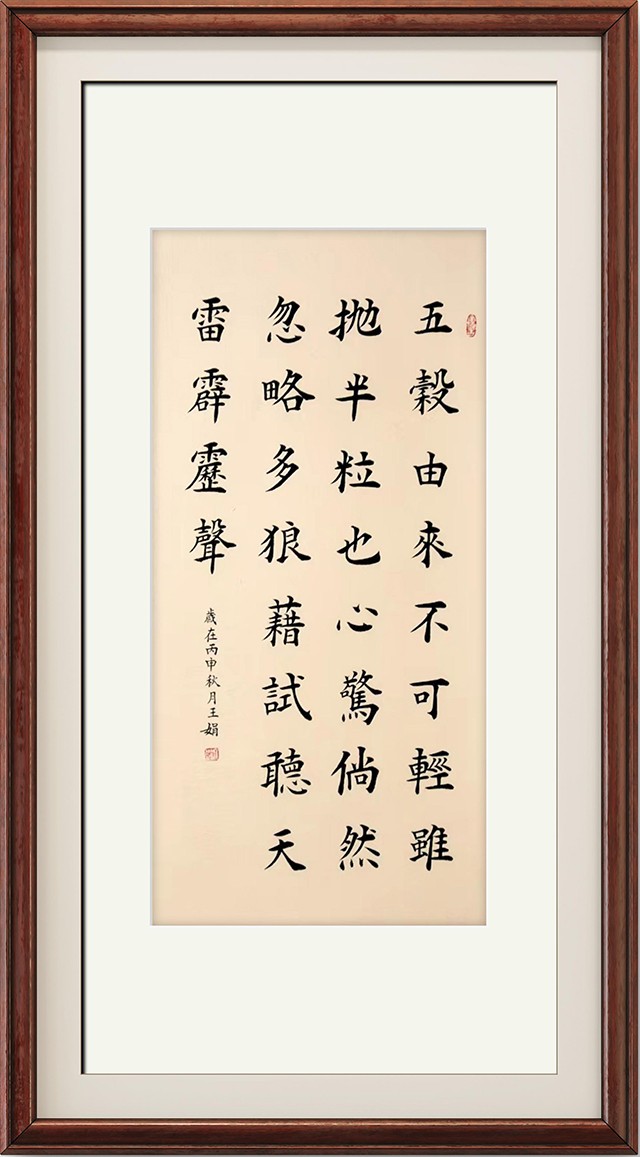 五穀由來不可輕雖
拋半粒也心驚倘然
忽略多狼藉試聽天
雷霹靂聲
歲在丙申秋月王娟